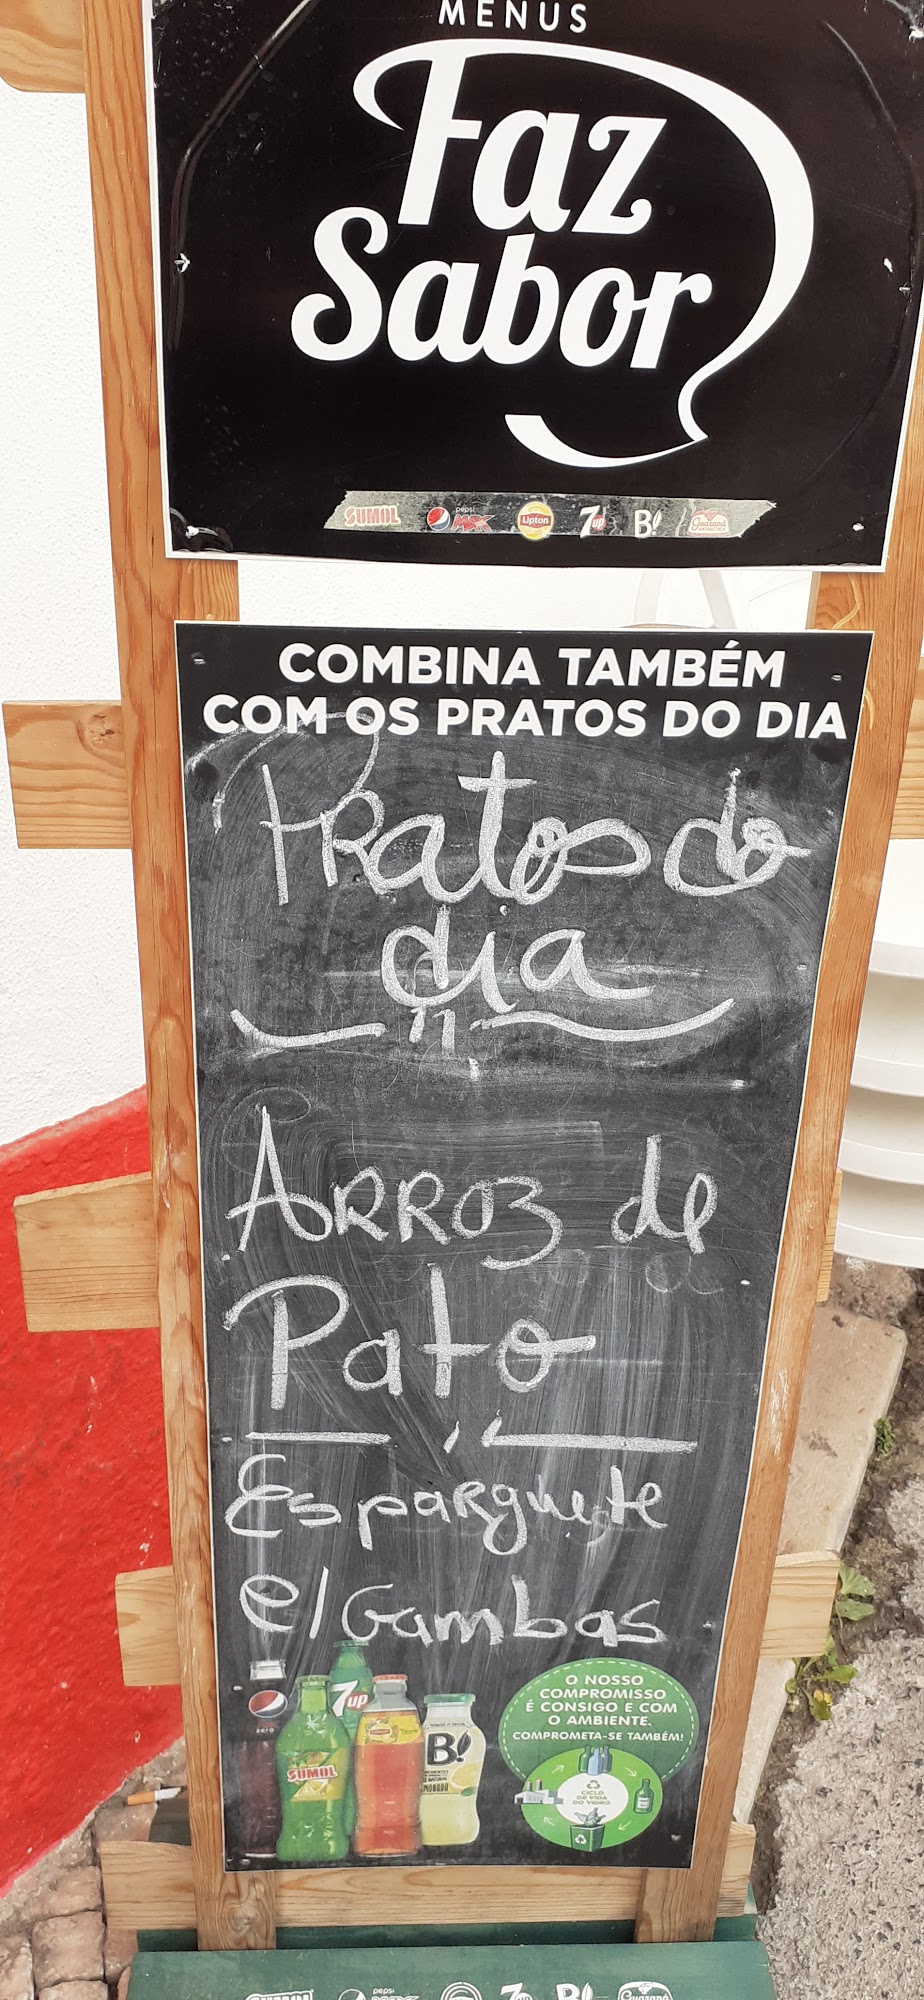 MENUS
Faz
Sabor
SUMOL pepsi MAX Lipton 7up B! Guaraná ANTARCTICA
COMBINA TAMBÉM
COM OS PRATOS DO DIA
Pratos do
dia
Arroz de
Pato
Esparguete
c/ Gambas
O NOSSO
COMPROMISSO
É CONSIGO E COM
O AMBIENTE.
COMPROMETA-SE TAMBÉM!
CICLO
DE VIDA
DO VIDRO
zero
7up
SUMOL
Lipton
B!
SUMOL pepsi MAX 7up B! Guaraná